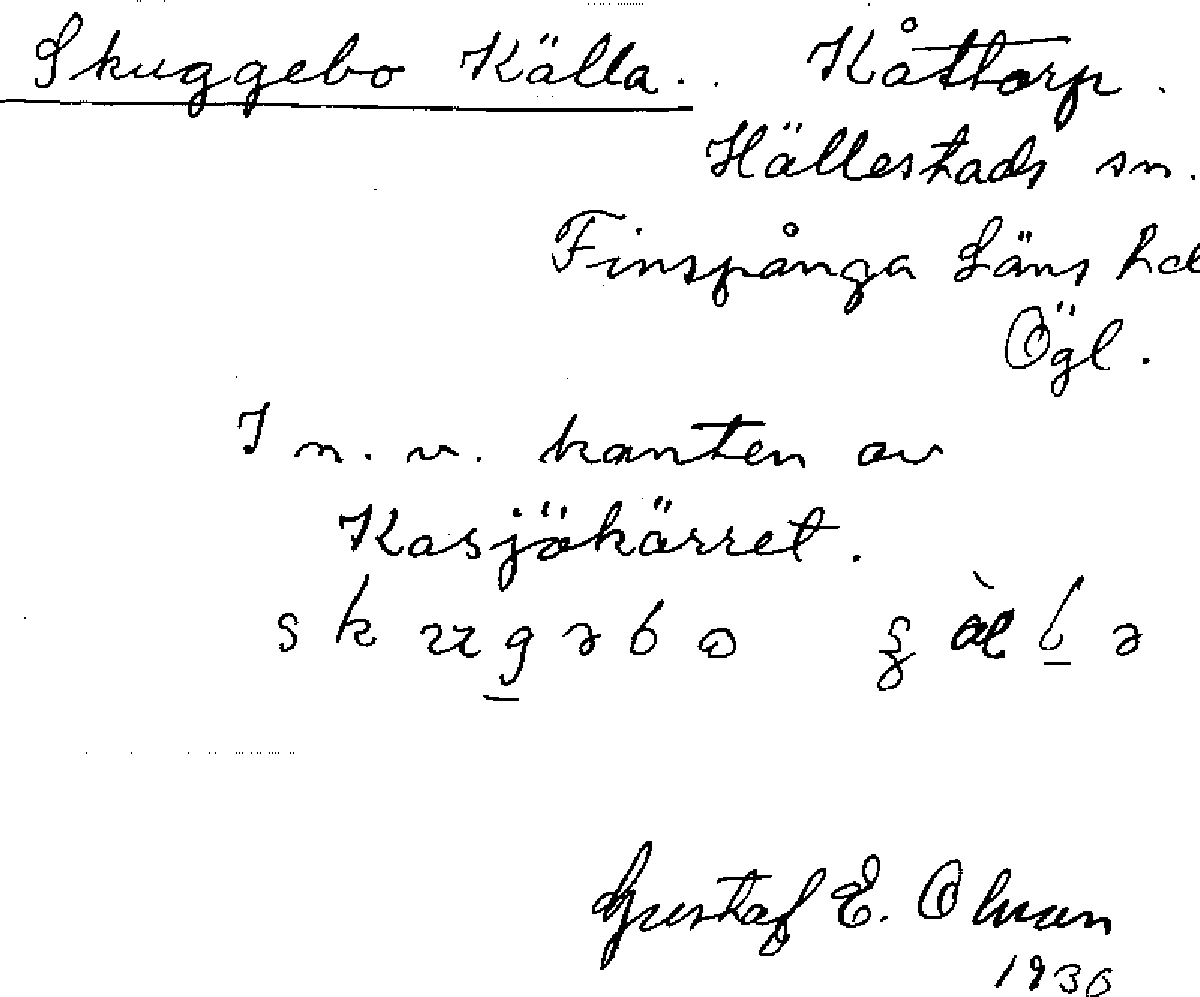 Skuggebo Källa. Kåttorp.
Hällestads sn.
Finspånga Läns hd
Ögl.
I n. v. kanten av
Kasjökärret.
Gustaf E. Olman
1936